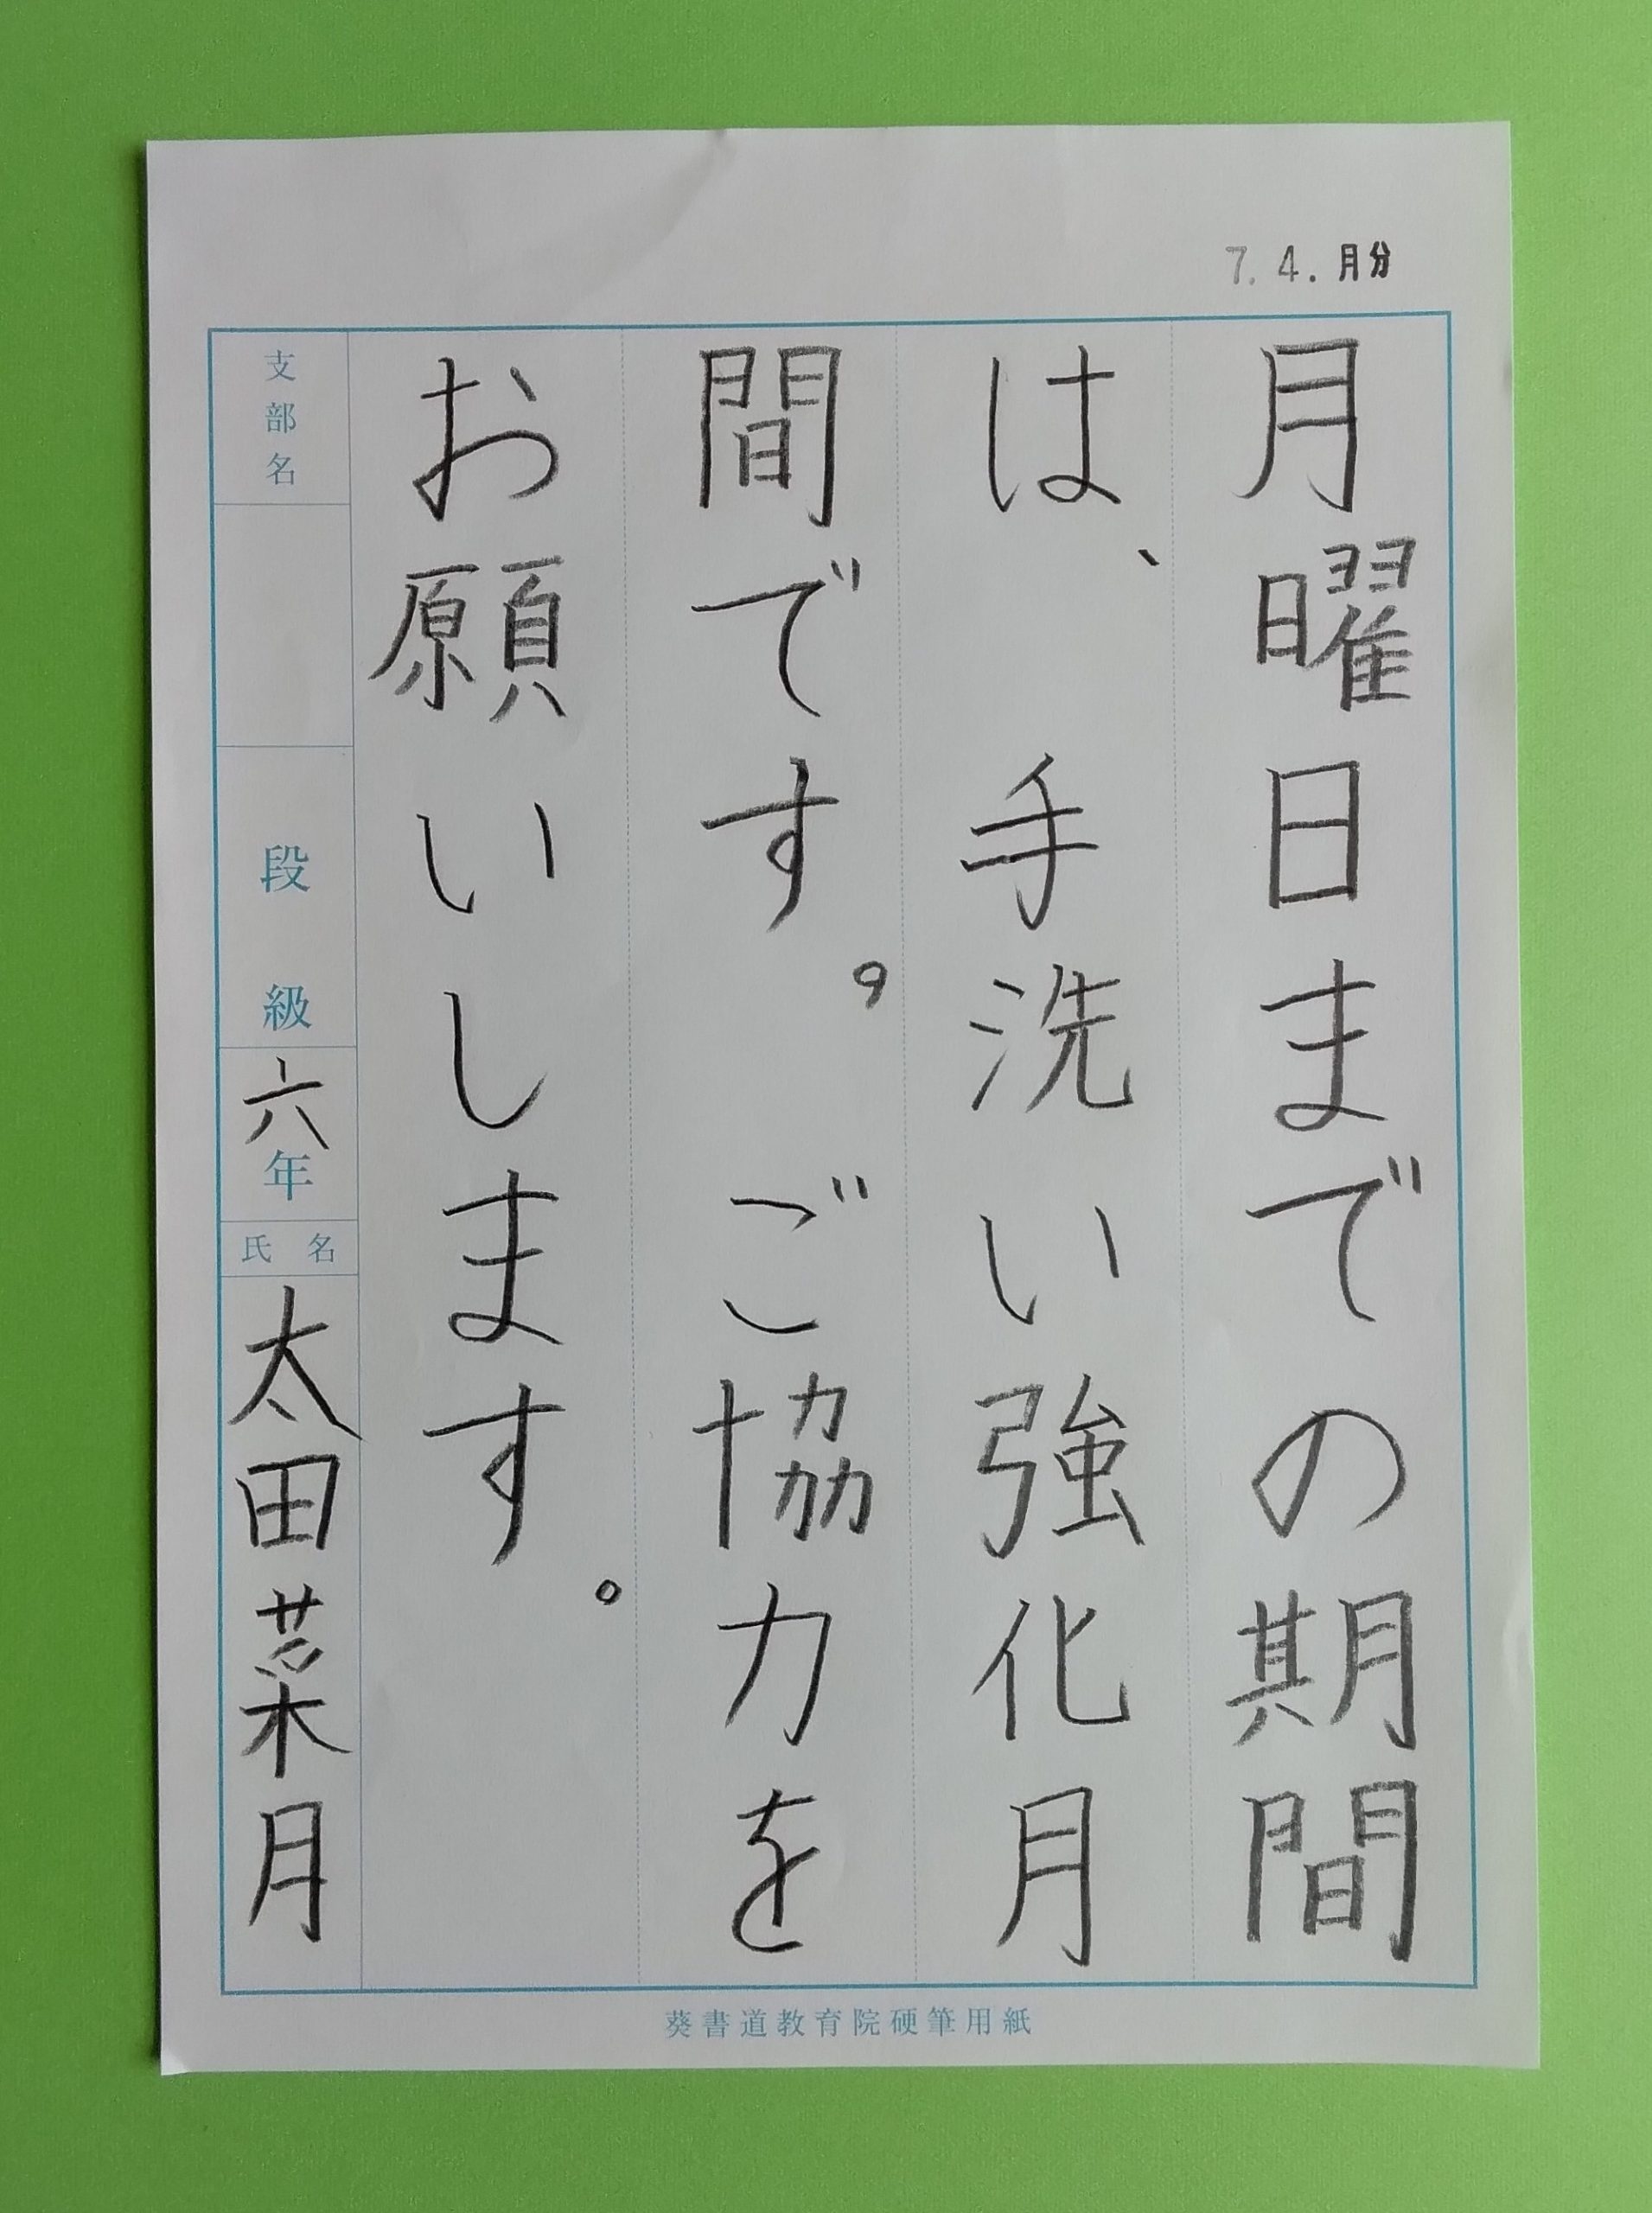 7.4.月分
月曜日までの期間
は、手洗い強化月
間です。ご協力を
お願いします。
支部名
段級
六年
氏名
太田菜月
葵書道教育院硬筆用紙